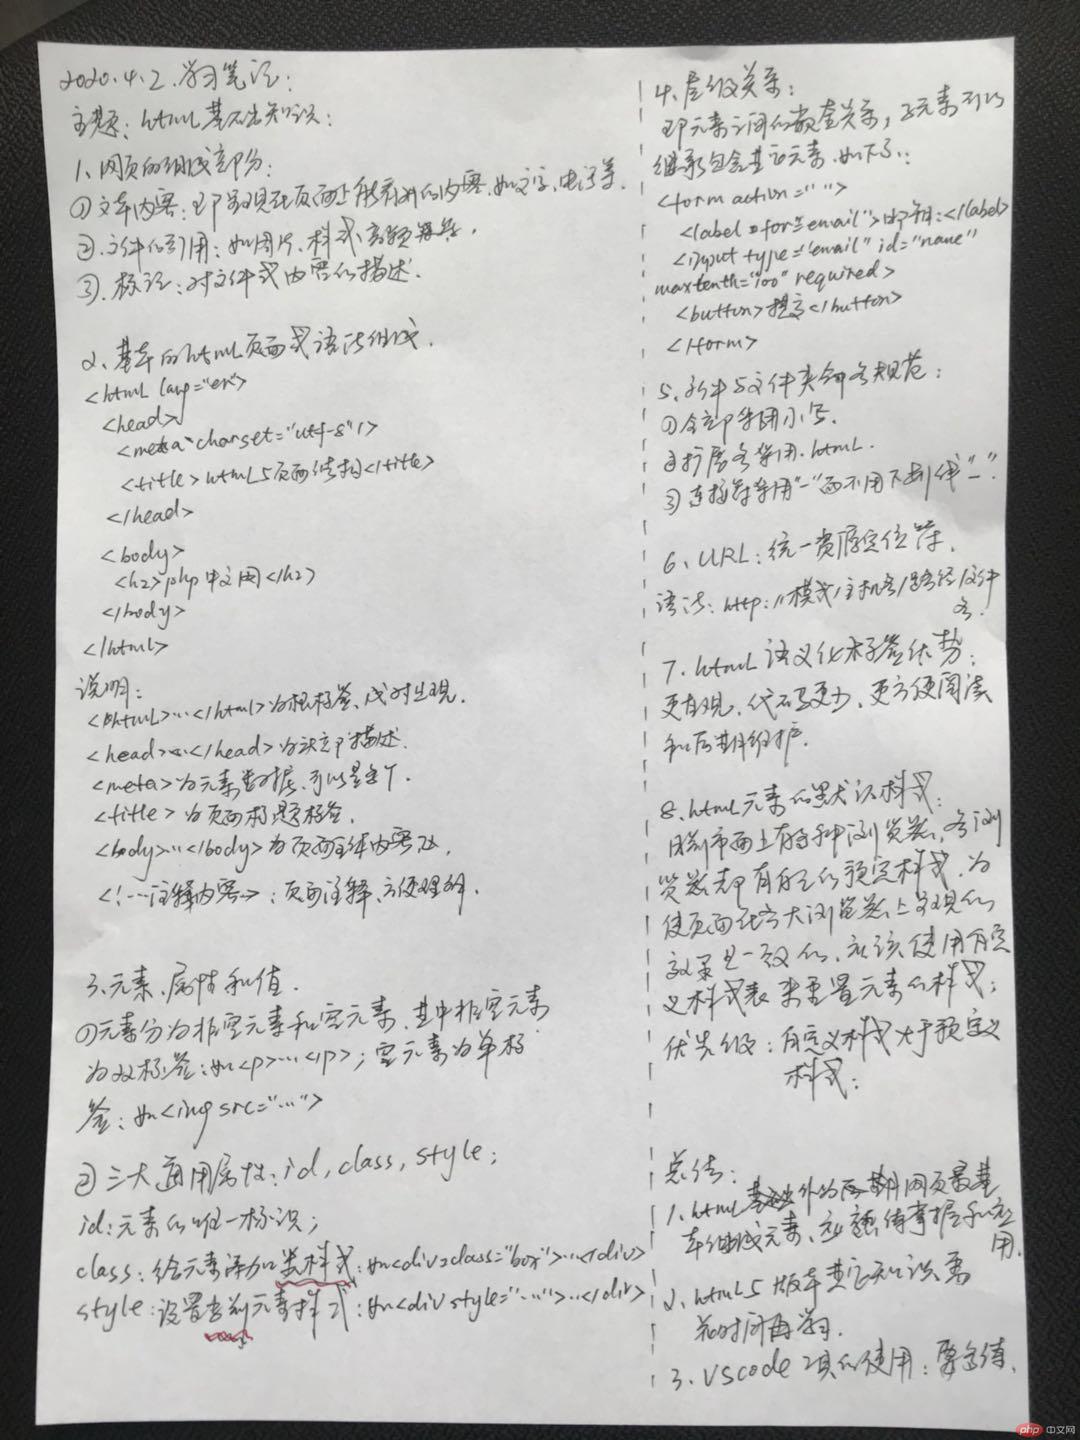 2020.4.2.学习笔记:
主题: html基础知识:
1、网页的组成部份:
①文本内容: 即呈现在页面上能看到的内容.如文字、电话等.
②.文件的引用: 如图片、样式、音频等.
③.标记: 对文件或内容的描述.
2、基本的html页面或语法组成.
<html lang="en">
<head>
<meta charset="utf-8"/>
<title>html5页面结构</title>
</head>
<body>
<h2>php中文网</h2>
</body>
</html>
说明:
<html>…</html>为根标签、成对出现.
<head>…</head>为头部描述.
<meta>为元素数据、可以是多个.
<title>为页面标题标签.
<body>…</body>为页面主体内容区.
<!--注释内容-->: 页面注释、方便理解.
3.元素、属性和值.
①元素分为非空元素和空元素、其中非空元素
为双标签: 如<p>…</p>; 空元素为单标
签: 如<img src="…">
②三大通用属性: id, class, style;
id: 元素的唯一标识;
class: 给元素添加类样式: 如<div class="box">…</div>
style: 设置当前元素样式: 如<div style="……">…</div>
4.层级关系:
即元素之间的嵌套关系, 子元素可以
继承包含其它元素.如下:
<form action="">
<label for="email">邮箱:</label>
<input type="email" id="name"
maxtenth="100" required>
<button>提交</button>
</form>
5、文件与文件夹命名规范:
①全部采用小写.
②扩展名采用.html.
③连接符采用"-"而不用下划线"_".
6、URL: 统一资源定位符.
语法: http://模式/主机名/路径/文件
名.
7.html语义化标签优势:
更直观、代码更少、更方便阅读
和后期维护.
8.html元素的默认样式:
目前市面上有多种浏览器、各浏
览器都有自己的预定样式、为
使页面在各大浏览器上呈现的
效果是一致的、应该使用自定
义样式表来重置元素的样式;
优先级: 自定义样式大于预定义
样式;
总结:
1.html 网页最基
本组成元素、必须掌握和应
用.
2、html5版本其它知识需
花时间再学习.
3.vscode工具的使用: 要多练.
php 中文网